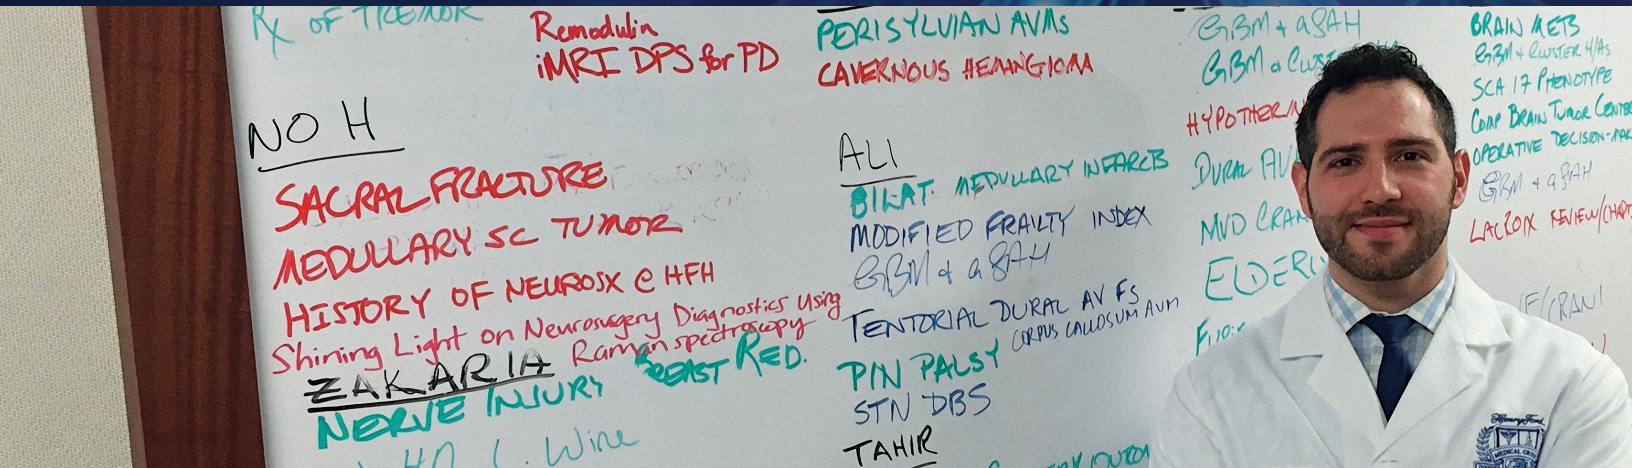 Rx OF TREMOR
Remodulin
iMRI DPS for PD
NO H
SACRAL FRACTURE
MEDULLARY SC TUMOR
HISTORY OF NEUROSX @ HFH
Shining Light on Neurosugery Diagnostics Using
Raman spectroscopy
ZAKARIA
NERVE INJURY BREAST RED.
L. Wine
PERISYLVIAN AVMS
CAVERNOUS HEMANGIOMA
ALI
BILAT. MEDULLARY INFARCTS
MODIFIED FRAILTY INDEX
GBM + aSAH
TENTORIAL DURAL AV FS
CORPUS CALLOSUM AVM
PIN PALSY
STN DBS
TAHIR
GBM + aSAH
GBM
DURAL
MVD CRAN
BRAIN METS
GBM + Cluster H/As
SCA 17 PHENOTYPE
COMP BRAIN TUMOR
OPERATIVE
GBM + aSAH
LACROIX REVIEW/
Henry Ford